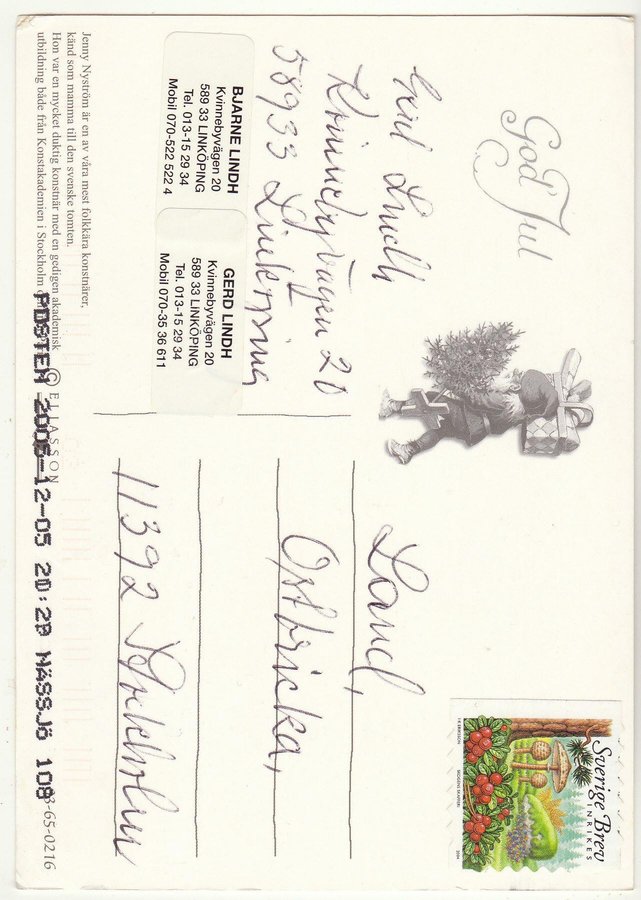 God Jul
Gerd Lindh
Kvinnebyvägen 20
58933 Linköping
BJARNE LINDH
Kvinnebyvägen 20
589 33 LINKÖPING
Tel. 013-15 29 34
Mobil 070-522 522 4
GERD LINDH
Kvinnebyvägen 20
589 33 LINKÖPING
Tel. 013-15 29 34
Mobil 070-35 36 611
Jenny Nyström är en av våra mest folkkära konstnärer,
känd som mamma till den svenske tomten.
Hon var en mycket duktig konstnär med en gedigen akademisk
utbildning både från Konstakademien i Stockholm
© ELIASSON
POSTEN 2006-12-05 20:28 NÄSSJÖ 108
3-65-0216
Sverige Brev
INRIKES
SKOGENS SKAFFERI
2004
Land,
Ostbricka,
11392 Stockholm